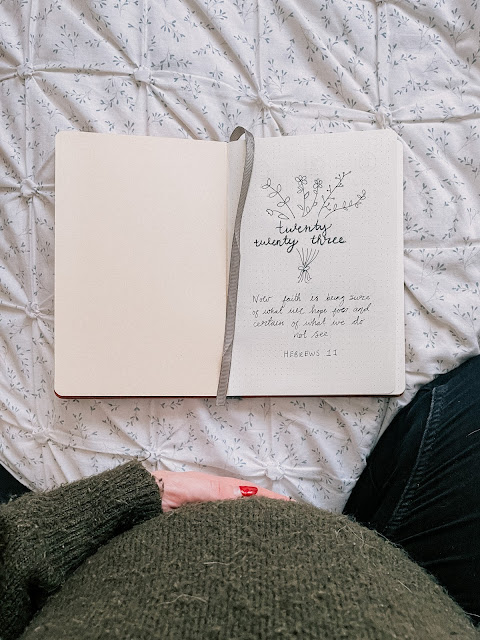 twenty
twenty three
Now faith is being sure
of what we hope for and
certain of what we do
not see
HEBREWS 11